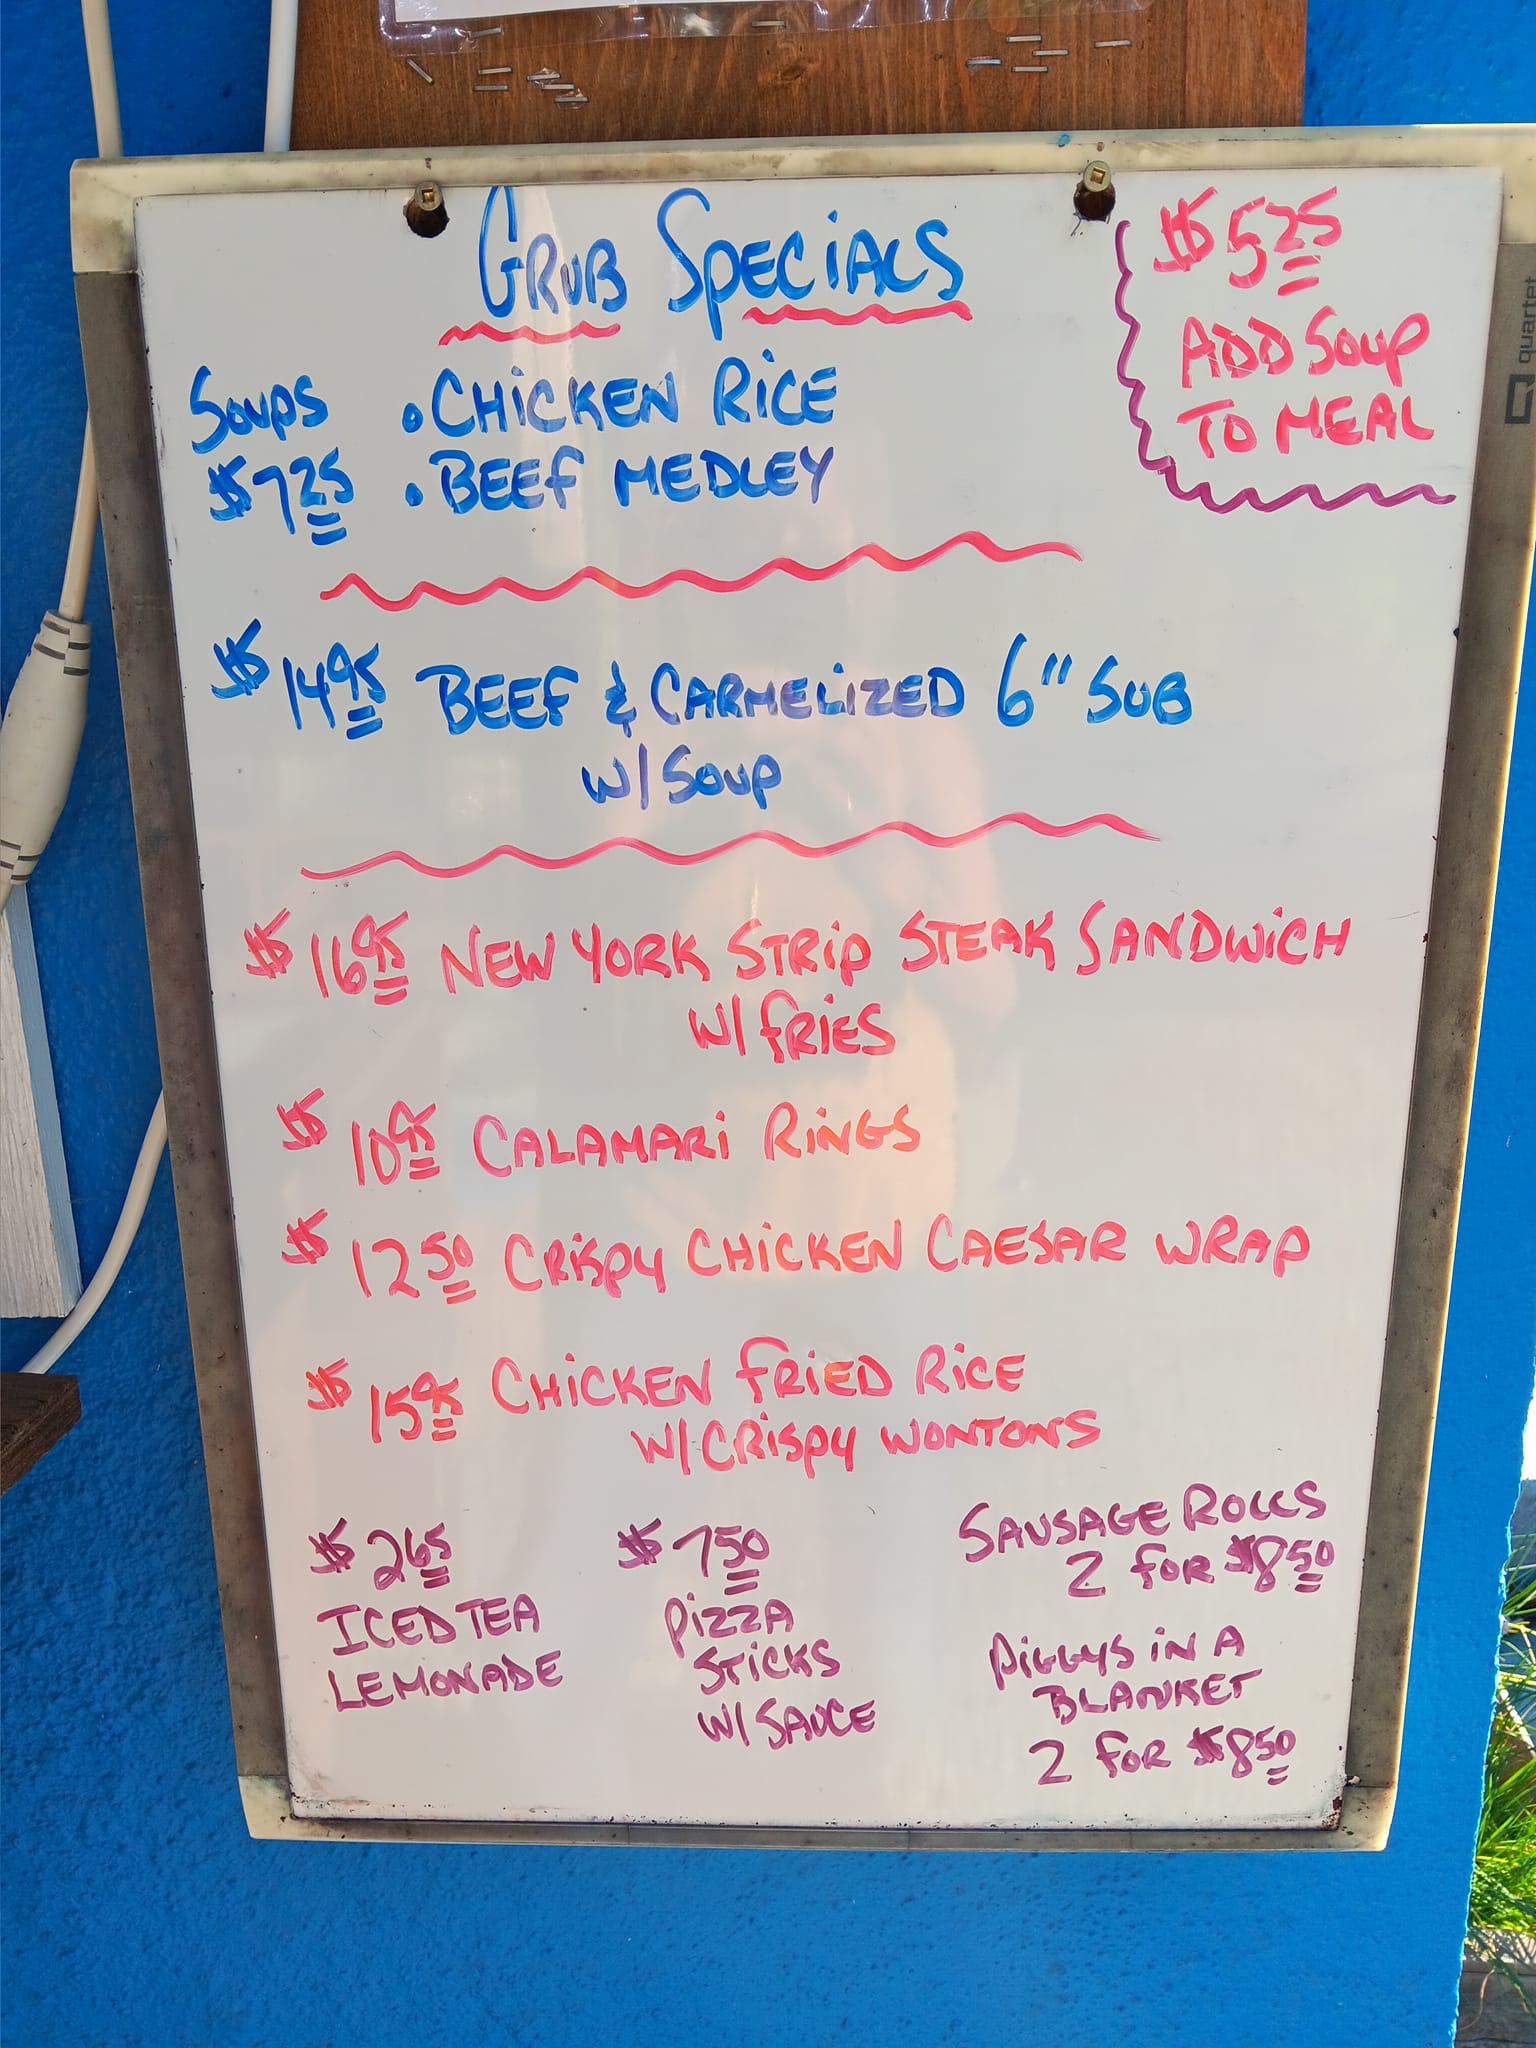 GRUB SPECIALS
$5.25
ADD SOUP
TO MEAL
SOUPS
$7.25
• CHICKEN RICE
• BEEF MEDLEY
$14.95 BEEF & CARMELIZED 6" SUB
W/ SOUP
$16.95 NEW YORK STRIP STEAK SANDWICH
W/ FRIES
$10.95 CALAMARI RINGS
$12.50 CRISPY CHICKEN CAESAR WRAP
$15.95 CHICKEN FRIED RICE
W/ CRISPY WONTONS
$2.65
ICED TEA
LEMONADE
$7.50
PIZZA
STICKS
W/ SAUCE
SAUSAGE ROLLS
2 FOR $8.50
PIGGYS IN A
BLANKET
2 FOR $8.50
quartet